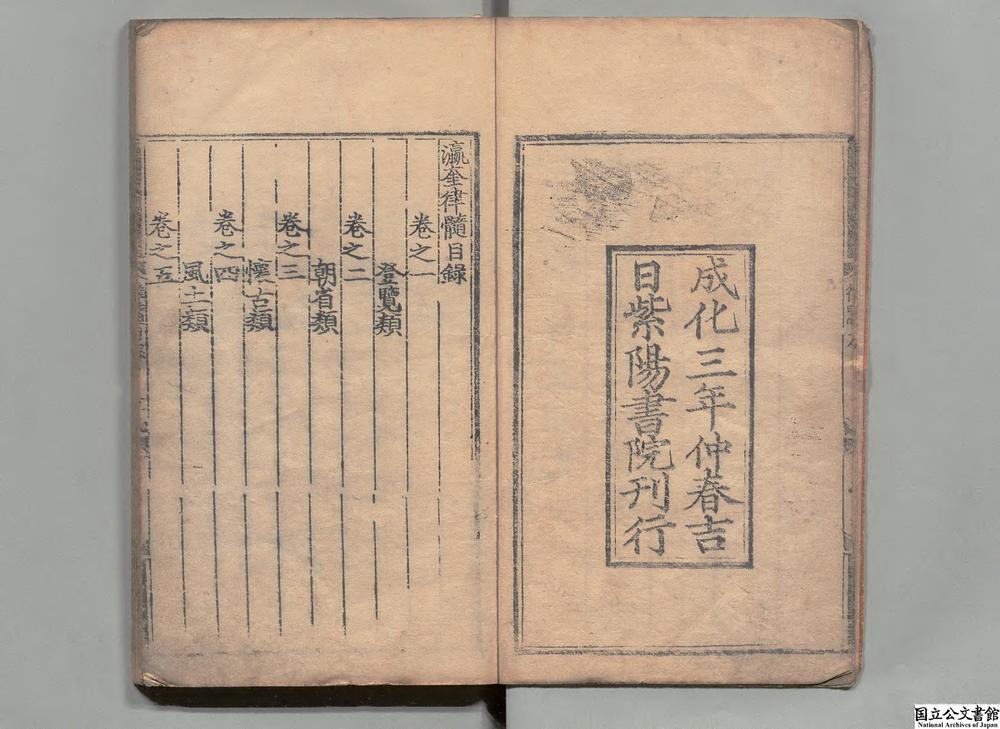 成化三年仲春吉
日紫陽書院刊行
瀛奎律髓目錄
卷之一
登覽類
卷之二
朝省類
卷之三
懷古類
卷之四
風土類
卷之五
国立公文書館
National Archives of Japan